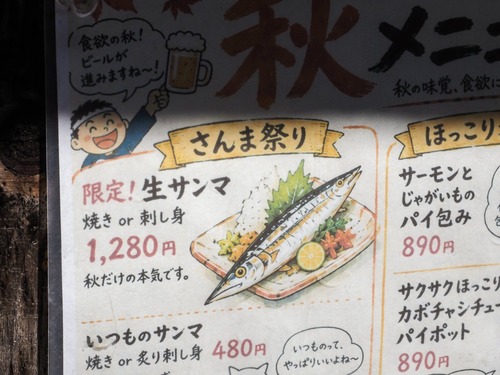 食欲の秋!
ビールが
進みますね〜!
秋
メニ
秋の味覚、食欲に
さんま祭り
限定!生サンマ
焼き or 刺し身
1,280円
秋だけの本気です。
いつものサンマ
焼き or 炙り刺し身
480円
いつものって、
やっぱりいいよね〜
ほっこり
サーモンと
じゃがいもの
パイ包み
890円
サクサクほっこり
カボチャシチュー
パイポット
890円